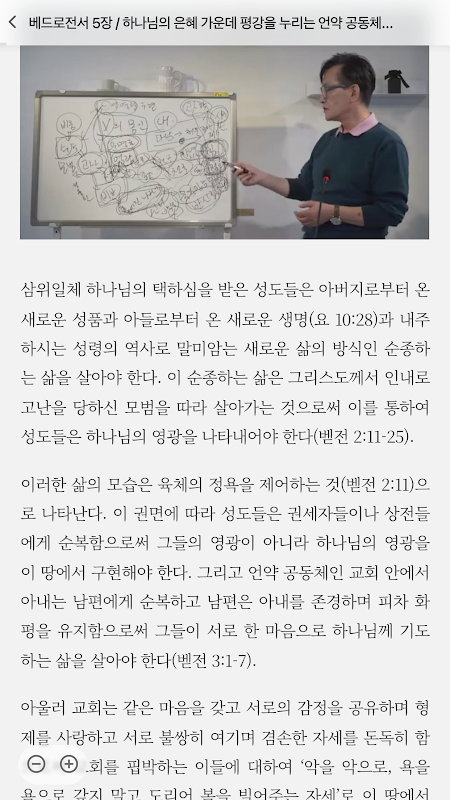 베드로전서 5장 / 하나님의 은혜 가운데 평강을 누리는 언약 공동체...
삼위일체 하나님의 택하심을 받은 성도들은 아버지로부터 온
새로운 성품과 아들로부터 온 새로운 생명(요 10:28)과 내주
하시는 성령의 역사로 말미암는 새로운 삶의 방식인 순종하
는 삶을 살아야 한다. 이 순종하는 삶은 그리스도께서 인내로
고난을 당하신 모범을 따라 살아가는 것으로써 이를 통하여
성도들은 하나님의 영광을 나타내어야 한다(벧전 2:11-25).
이러한 삶의 모습은 육체의 정욕을 제어하는 것(벧전 2:11)으
로 나타난다. 이 권면에 따라 성도들은 권세자들이나 상전들
에게 순복함으로써 그들의 영광이 아니라 하나님의 영광을
이 땅에서 구현해야 한다. 그리고 언약 공동체인 교회 안에서
아내는 남편에게 순복하고 남편은 아내를 존경하며 피차 화
평을 유지함으로써 그들이 서로 한 마음으로 하나님께 기도
하는 삶을 살아야 한다(벧전 3:1-7).
아울러 교회는 같은 마음을 갖고 서로의 감정을 공유하며 형
제를 사랑하고 서로 불쌍히 여기며 겸손한 자세를 돈독히 함
교회를 핍박하는 이들에 대하여 ‘악을 악으로, 욕을
욕으로 갚지 말고 도리어 복을 빌어주는 자세’로 이 땅에서